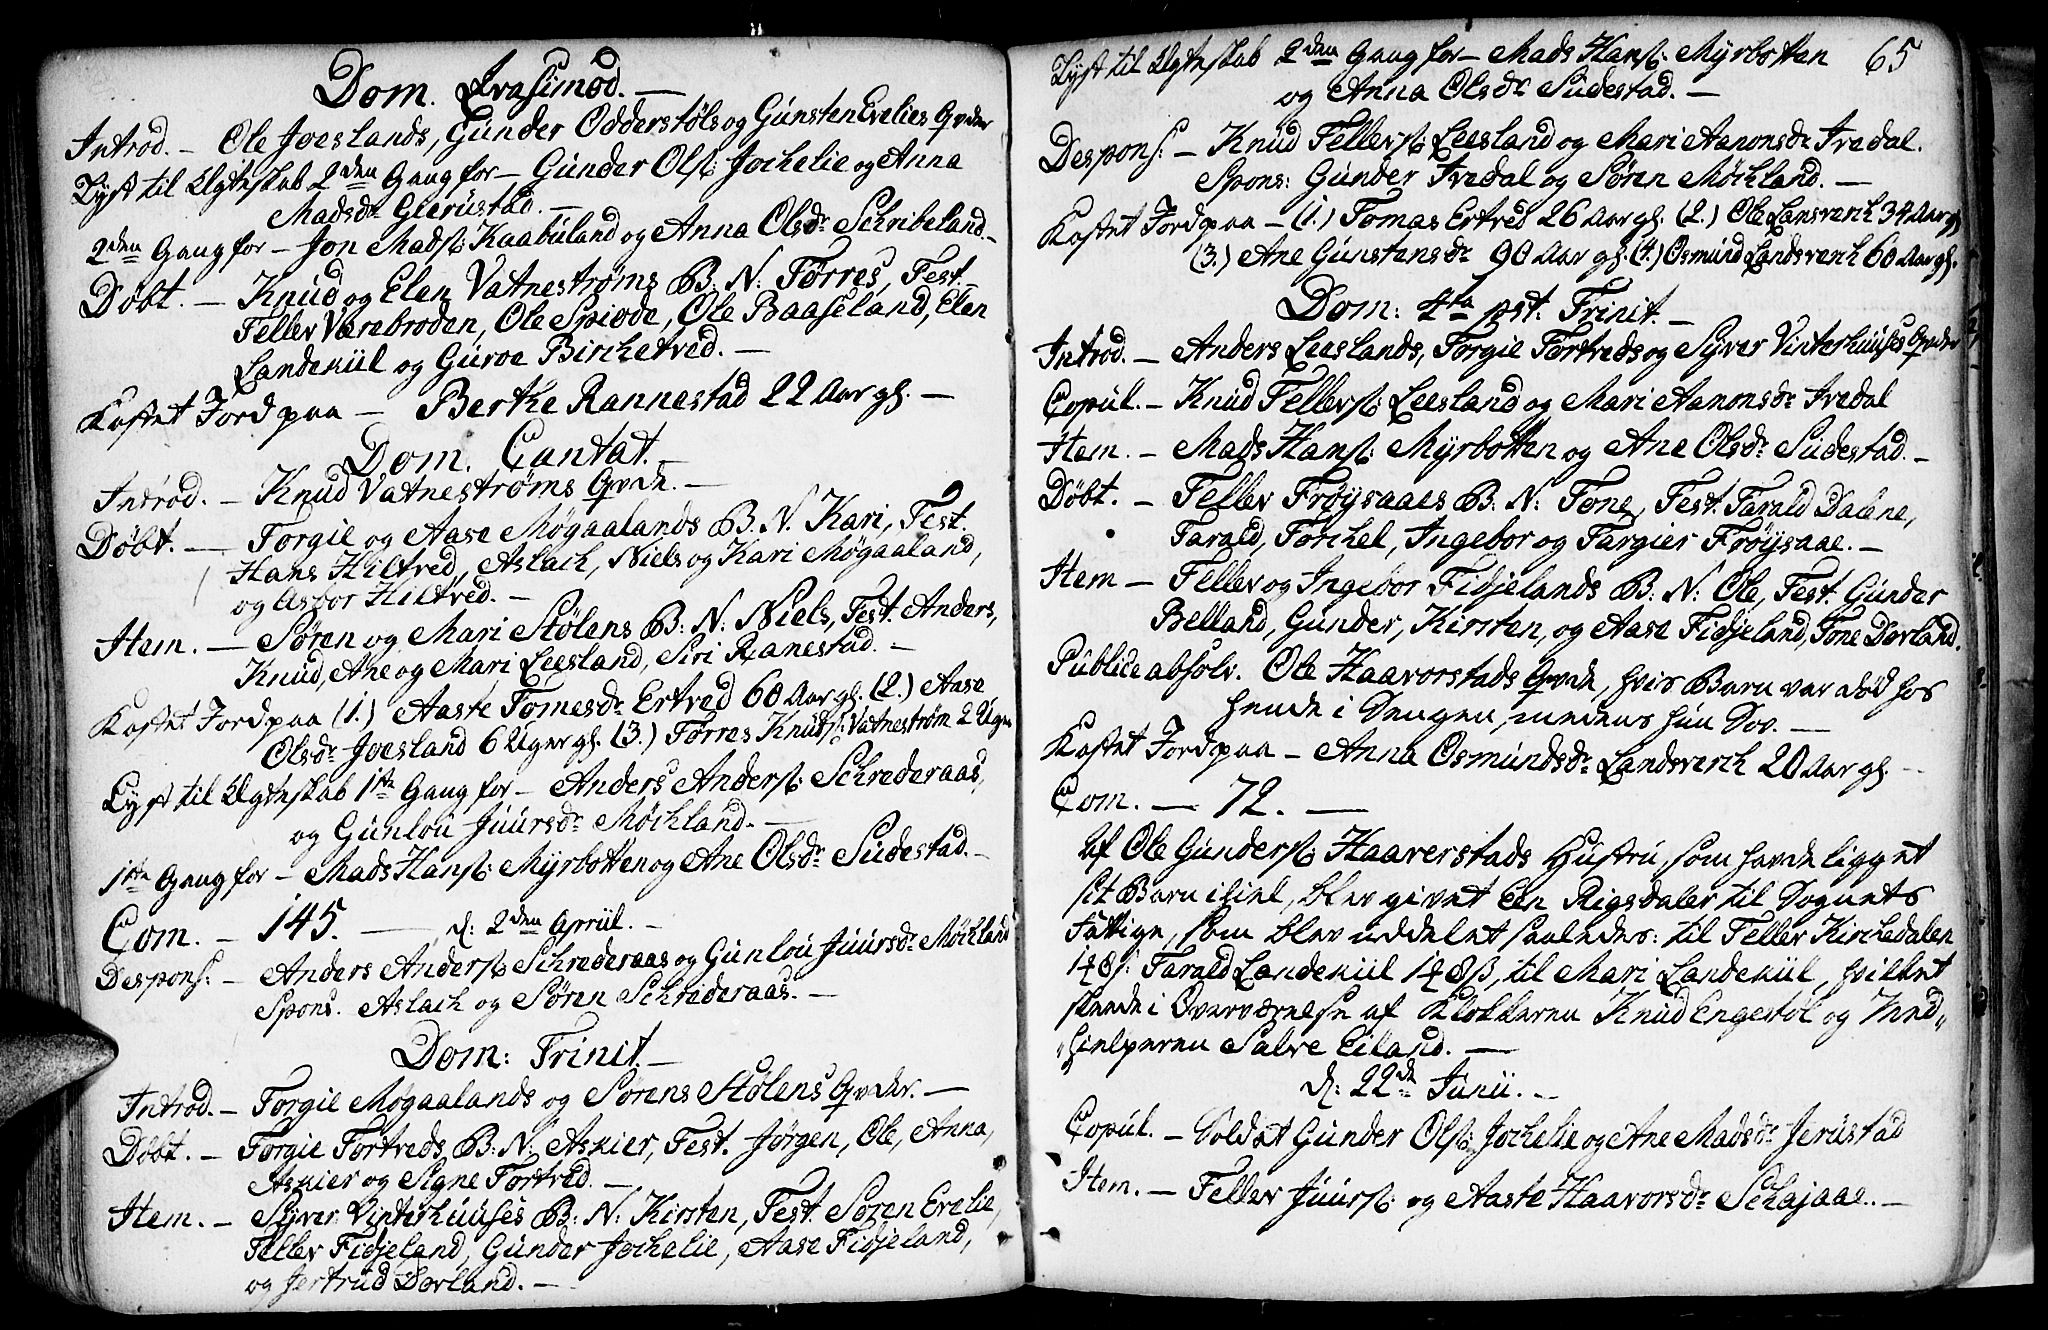 Dom. Qvasimod. —
Introd. — Ole Joeslands, Gunder Odderstøls og Gunsten Evelies Qvder
Lyst til Ægteskab 2den Gang for — Gunder Olss: Jochelie og Anna
Madsdr Gierustad. —
2den Gang for — Jon Madss: Kaabuland og Anna Olsdr Schribeland. —
Døbt. — Knud og Elen Vatnestrøms B. N. Torres, Test.
Tellev Varebroden, Ole Spiode, Ole Baaseland, Elen
Landekiil og Guroe Birchetved. —
Kastet Jord paa — Berthe Rannestad 22 Aar gl. —
Dom. Cantat. —
Introd. — Knud Vatnestrøms Qvde. —
Døbt. — Torgie og Aase Møgaalands B. N. Kari, Test.
Hans Hiltved, Aslach, Niels og Kari Møgaaland,
og Asbor Hiltved. —
Item. — Søren og Mari Stølens B: N: Niels, Test. Anders,
Knud, Ane og Mari Leesland, Siri Ranestad. —
Kastet Jord paa (1.) Aaste Tomesdr Ertved 60 Aar gl. (2.) Aase
Olsdr Joesland 6 Uger gl. (3.) Torres Knudss: Vatnestrøm 2 Uger
Lyst til Ægteskab 1ste Gang for — Anders Anderss: Schrederaas,
og Gunlou Juursdr Møchland. —
1ste Gang for — Mads Hanss: Myrbotten og Ane Olsdr Sudestad. —
Com. — 145. — d: 2den Apriil. —
Despons: — Anders Anderss: Schrederaas og Gunlou Juursdr Møchland
Spons. Aslach og Søren Schrederaas. —
Dom: Trinit. —
Introd. — Torgie Møgaalands og Sørens Stølens Qvder. —
Døbt. — Torgie Tortveds B: N: Askier, Test. Jørgen, Ole, Anna,
Askier og Signe Tortved. —
Item. — Syver Vinterhuuses B: N: Kirsten, Test. Søren Evelie,
Tellev Fidjeland, Gunder Jochelie, Aase Fidjeland,
og Jertrud Dorland. —
65
Lyst til Ægteskab 2den Gang for — Mads Hanss: Myrbotten
og Anna Olsdr Sudestad. —
Despons: — Knud Tellevss: Leesland og Mari Aanonsdr Ivedal.
Spons: Gunder Ivedal og Søren Møchland. —
Kastet Jord paa — (1.) Tomas Ertved 26 Aar gl. (2.) Ole Lansverch 34 Aar gl
(3.) Ane Gunstensdr 90 Aar gl. (4.) Osmund Landsverch 60 Aar gl.
Dom: 4ta pst: Trinit. —
Introd. — Anders Leeslands, Torgie Tortveds og Syver Vinterhuuses Qvder
Copul. — Knud Tellevss: Leesland og Mari Aanonsdr Ivedal
Item. — Mads Hanss: Myrbotten og Ane Olsdr Sudestad. —
Døbt. — Tellev Frøysaaes B: N: Tone, Test. Tarald Dalene,
Tarald, Torchel, Ingebor og Targier Frøysaae. —
Item — Tellev og Ingebor Fidjelands B: N: Ole, Test. Gunder
Belland, Gunder, Kirsten, og Aase Fidjeland, Tone Dorland.
Publice absolv. Ole Haavorstads Qvde, hvis Barn var død hos
hende i Sengen, medens hun Sov. —
Kastet Jord paa — Anna Osmundsdr Landsverch 20 Aar gl. —
Com. — 72. —
Af Ole Gunderss: Haaverstads Hustru, som havde ligget
sit Barn ihiel, blev givet Een Rigsdaler til Sognets
Fattige, som blev uddelet saaledes: til Tellev Kirchedalen
1 4 8 s: Tarald Landekiil 1 4 8 s, til Mari Landekiil, hvilket
skeede i Overværelse af Klokkeren Knud Engestøl og Med„
„hielperen Salve Eiland. —
d: 22de Junii. —
Copul. — Soldat Gunder Olss: Jochelie og Ane Madsdr Jerustad
Item. — Tellev Juurss: og Aaste Haavorsdr Schajaae. —